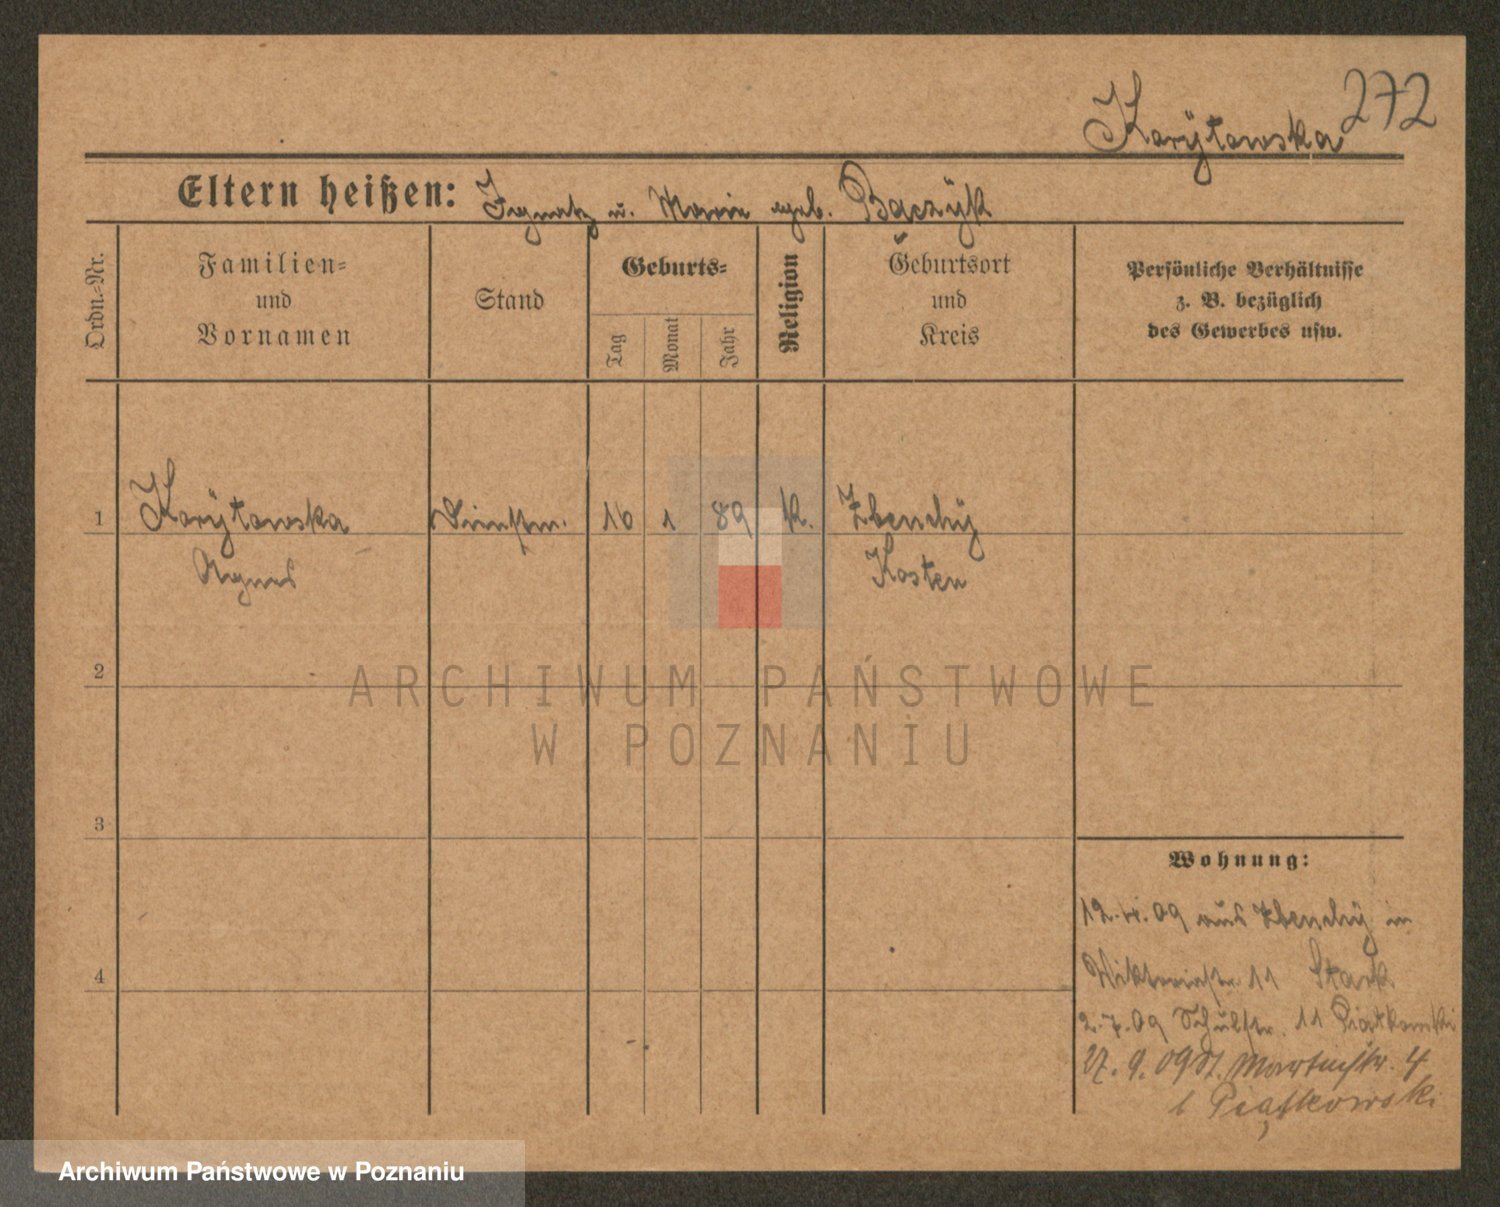 272
Korÿtowska
Eltern heißen: Ignatz u. Marie geb. Baczÿk
Ordn.-Nr.
Familien-
und
Vornamen
Stand
Geburts-
Tag
Monat
Jahr
Religion
Geburtsort
und
Kreis
Persönliche Verhältnisse
z. B. bezüglich
des Gewerbes usw.
1 Korÿtowska Dienstm. 16 1 89 K. Zbenchÿ
Agnes Kosten
2
ARCHIWUM PAŃSTWOWE
W POZNANIU
3
Wohnung:
4
12. 4. 09 aus Zbenchÿ in
Viktoriastr. 11 Stark
2. 7. 09 Schulstr. 11 Piatkowski
27. 9. 09 St. Martinstr. 4
b Piątkowski
Archiwum Państwowe w Poznaniu